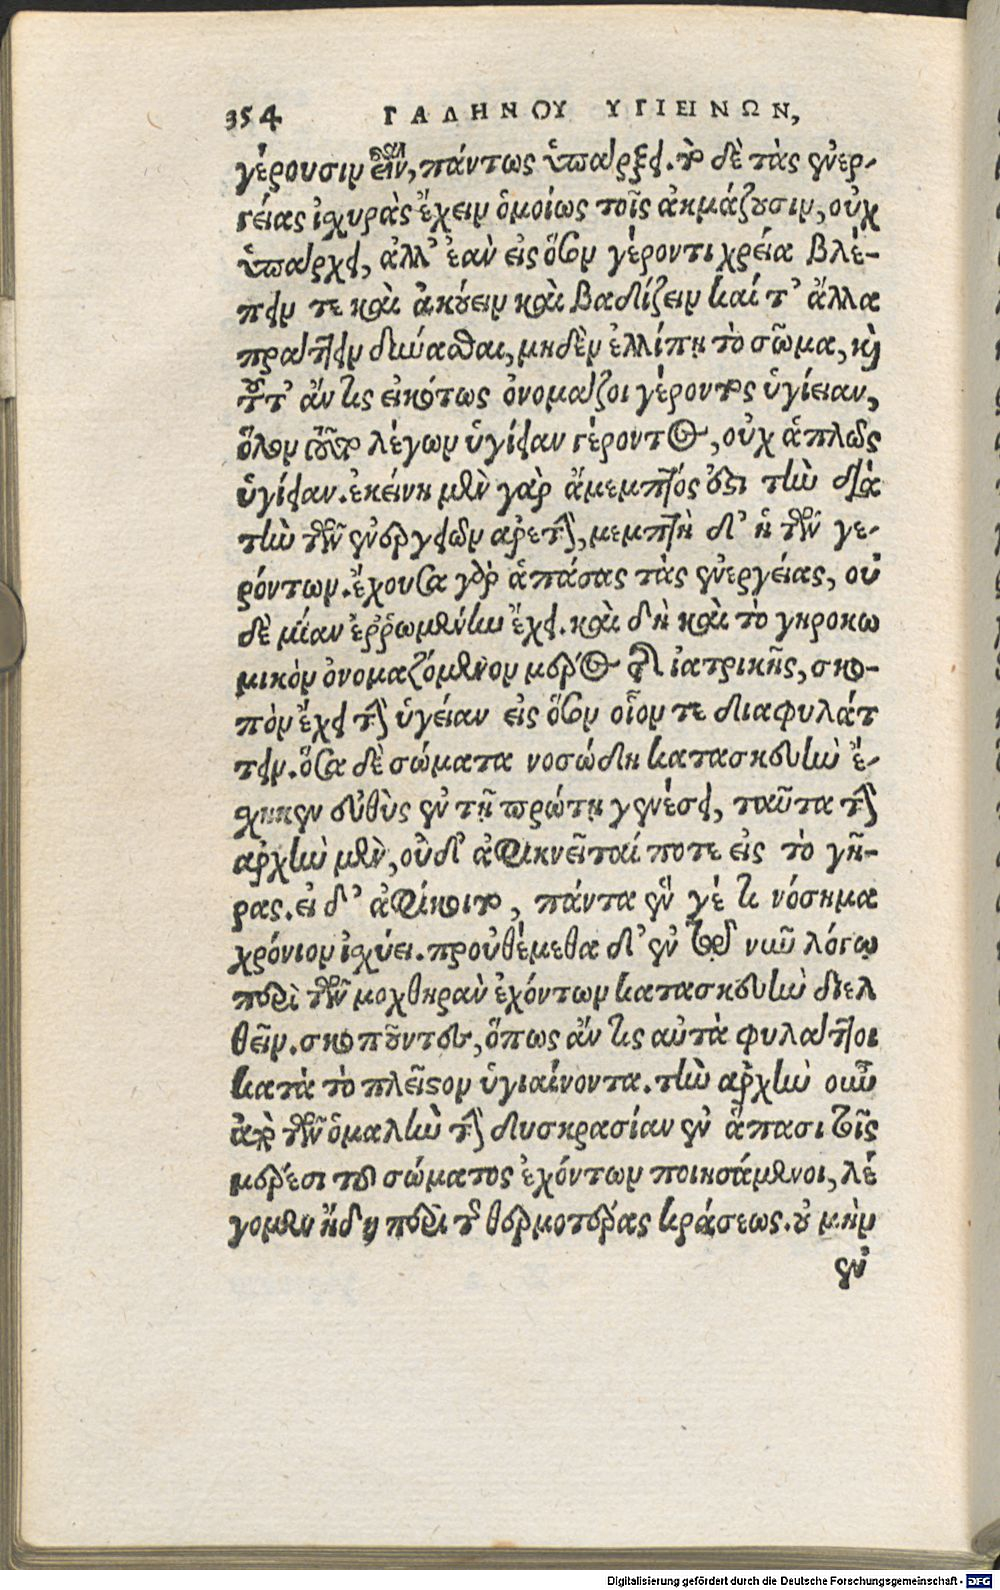 354 ΓΑΛΗΝΟΥ ΥΓΙΕΙΝΩΝ,
γέρουσιν εἶναι, πάντως ὑπάρξει. τὸ δὲ τὰς ἐνερ-
γείας ἰσχυρὰς ἔχειν ὁμοίως τοῖς ἀκμάζουσιν, οὐχ
ὑπάρχει, ἀλλ' ἐὰν εἰς ὅσον γέροντι χρεία βλέ-
πειν τε καὶ ἀκούειν καὶ βαδίζειν καί τ' ἄλλα
πράττειν δύνασθαι, μηδὲν ἐλλίπῃ τὸ σῶμα, καὶ
τοῦτ' ἄν τις εἰκότως ὀνομάζοι γέροντος ὑγίειαν,
ὅλον τοῦτο λέγων ὑγίειαν γέροντος, οὐχ ἁπλῶς
ὑγίειαν. ἐκείνη μὲν γὰρ ἄμεμπτός ἐστι τὴν διὰ
τὴν τῶν ἐνεργειῶν ἀρετὴν, μεμπτὴ δ' ἡ τῶν γε-
ρόντων. ἔχουσα γὰρ ἁπάσας τὰς ἐνεργείας, οὐ
δὲ μίαν ἐῤῥωμένην ἔχει. καὶ δὴ καὶ τὸ γηροκω
μικὸν ὀνομαζόμενον μέρος τῆς ἰατρικῆς, σκο-
πὸν ἔχει τὴν ὑγείαν εἰς ὅσον οἷον τε διαφυλάτ
τειν. ὅσα δὲ σώματα νοσώδη κατασκευὴν ἔ-
χηκεν εὐθὺς ἐν τῇ πρώτῃ γενέσει, ταῦτα τὴν
ἀρχὴν μὲν, οὐδ' ἀφικνεῖταί ποτε εἰς τὸ γῆ-
ρας. εἰ δ' ἀφίκοιτο, πάντα ἕν γέ τι νόσημα
χρόνιον ἰσχύει. προὐθέμεθα δ' ἐν τῷδε νῦν λόγῳ
περὶ τῶν μοχθηρὰν ἐχόντων κατασκευὴν διελ
θεῖν. σκοποῦντες, ὅπως ἄν τις αὐτὰ φυλάττοι
κατὰ τὸ πλεῖστον ὑγιαίνοντα. τὴν ἀρχὴν οὖν
ἀπὸ τῶν ὁμαλὴν τὴν δυσκρασίαν ἐν ἅπασι τοῖς
μέρεσι τοῦ σώματος ἐχόντων ποιησάμενοι, λέ
γομεν ἤδη περὶ τῆς θερμοτέρας κράσεως. οὐ μὴν
ἐν
Digitalisierung gefördert durch die Deutsche Forschungsgemeinschaft - DFG